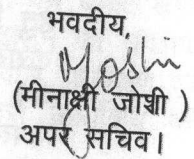 भवदीय,
Joshi
(मीनाक्षी जोशी )
अपर सचिव।